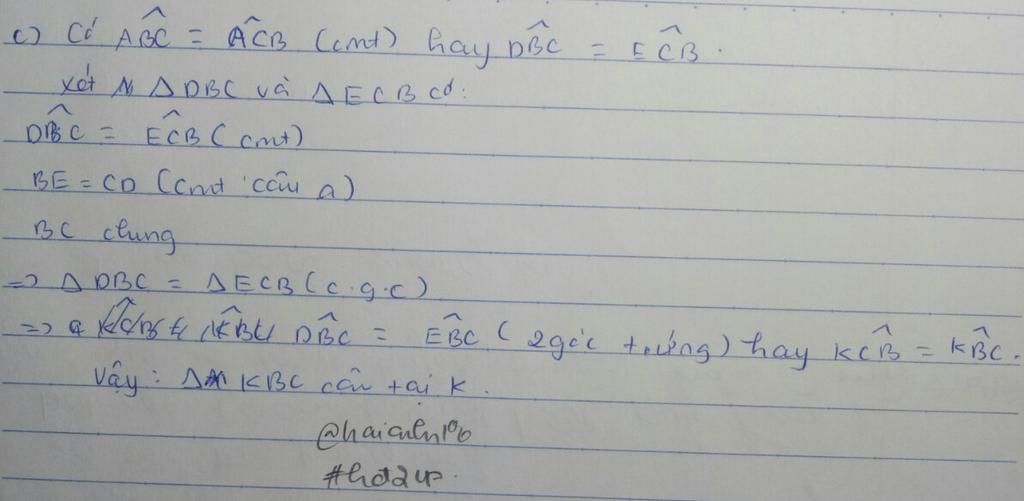 c) Có ABC^ = ACB^ (cmt) hay DBC^ = ECB^.
Xét ΔDBC và ΔECB có:
DBC^ = ECB^ (cmt)
BE = CD (cmt câu a)
BC chung
=> ΔDBC = ΔECB (c.g.c)
=> DBC^ = EBC^ (2 góc t.ứng) hay KCB^ = KBC^.
Vậy: Δ KBC cân tại K.